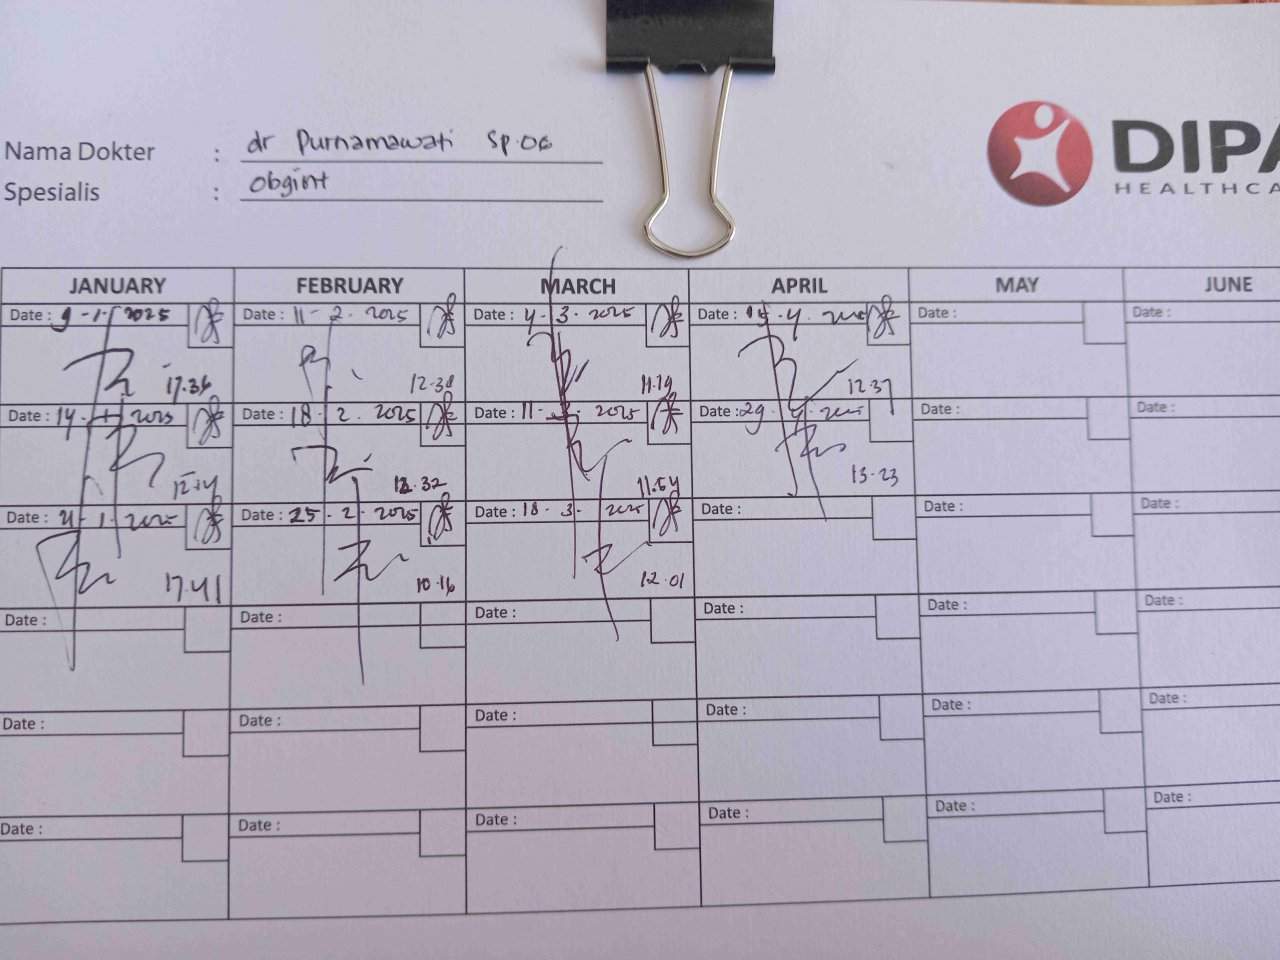 Nama Dokter : dr Purnamawati Sp.OG
Spesialis : Obgint
DIPA
HEALTHCA
JANUARY FEBRUARY MARCH APRIL MAY JUNE
Date : 9-1-2025 Date : 11-2-2025 Date : 4-3-2025 Date : 15-4- Date : Date :
17.36 12.38 11.19 12.37
Date : 14-1-2025 Date : 18-2-2025 Date : 11-3-2025 Date : 29-4- Date : Date :
12.32 11.54 13.23
Date : 21-1-2025 Date : 25-2-2025 Date : 18-3-2025 Date : Date : Date :
17.41 10.16 12.01
Date : Date : Date : Date : Date : Date :
Date : Date : Date : Date : Date : Date :
Date : Date : Date : Date : Date : Date :